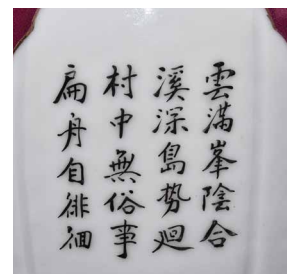 雲滿峯陰合
溪深島勢迴
村中無俗事
扁舟自徘徊